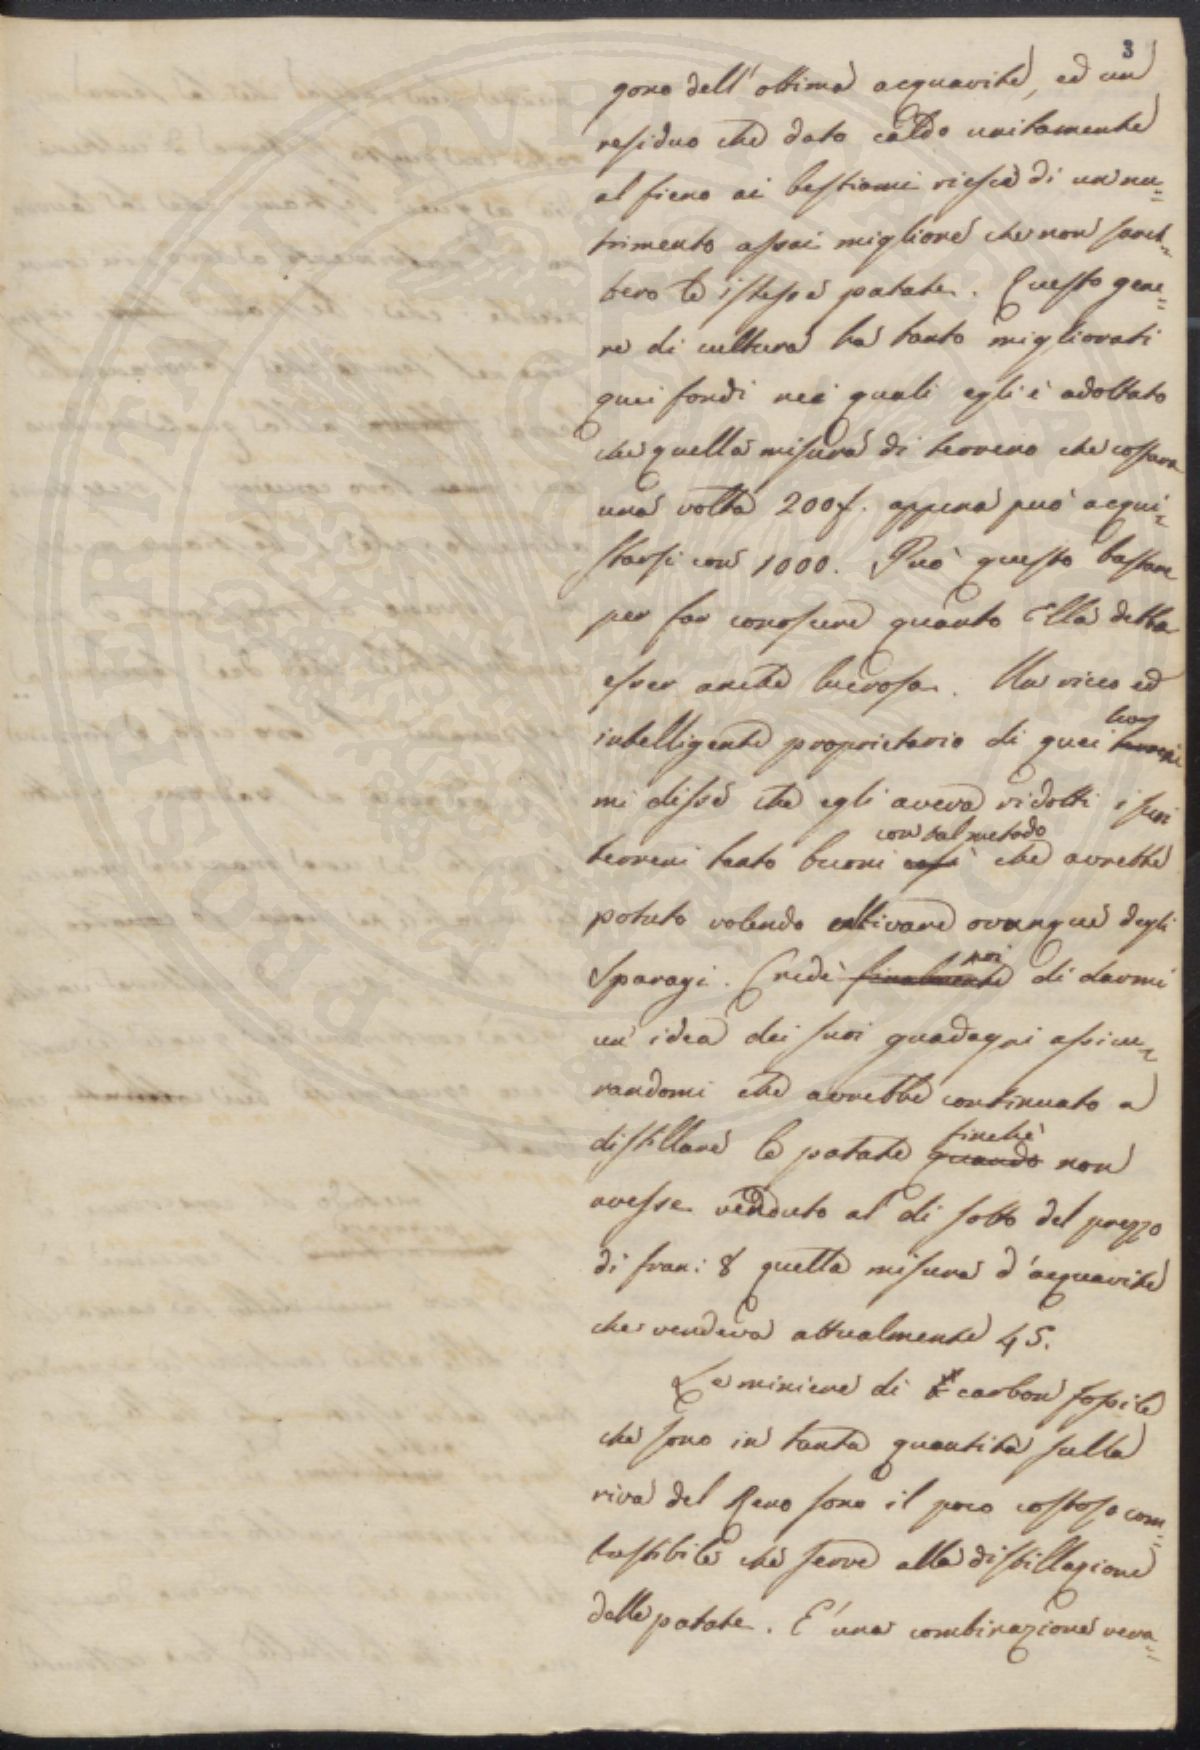 3
gono dell'ottima acquavite, ed un
residuo che dato caldo unitamente
al fieno ai bestiami riesce di un nu=
trimento assai migliore che non sareb=
bero le istesse patate. Questo gene=
re di cultura ha tanto migliorati
quei fondi nei quali egli è adottato
che quella misura di terreno che costava
una volta 200f. appena può acqui=
starsi con 1000. Può questo bastare
per far conoscere quanto Ella debba
esser anche lucrosa. Un ricco ed
intelligente proprietario di quei terreni
mi disse che egli aveva ridotti i suoi
con tal metodo
terreni tanto buoni così che avrebbe
potuto volendo coltivare ovunque degli
poi
Sparagi. Credè finalmente di darmi
un'idea dei suoi guadagni assicu=
randomi che avrebbe continuato a
finchè
distillare le patate quando non
avesse venduto al di sotto del prezzo
di frani 8 quella misura d'acquavite
che vendeva attualmente 45.
Le miniere di carbon fossile
che sono in tanta quantità sulla
riva del Reno sono il poco costoso com=
bustibile che serve alla distillazione
delle patate. E' una combinazione vera=